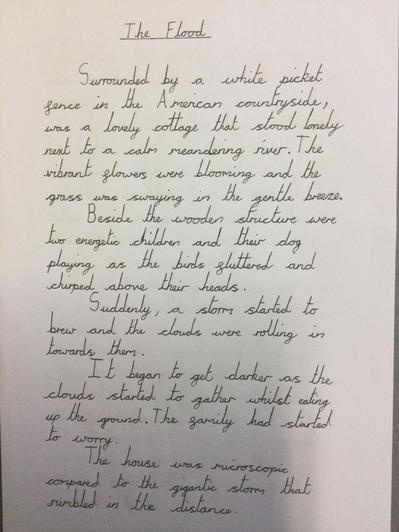 The Flood
Surrounded by a white picket
fence in the American countryside,
was a lovely cottage that stood lonely
next to a calm meandering river. The
vibrant flowers were blooming and the
grass was swaying in the gentle breeze.
Beside the wooden structure were
two energetic children and their dog
playing as the birds fluttered and
chirped above their heads.
Suddenly, a storm started to
brew and the clouds were rolling in
towards them.
It began to get darker as the
clouds started to gather whilst eating
up the ground. The family had started
to worry.
The house was microscopic
compared to the gigantic storm that
rumbled in the distance.